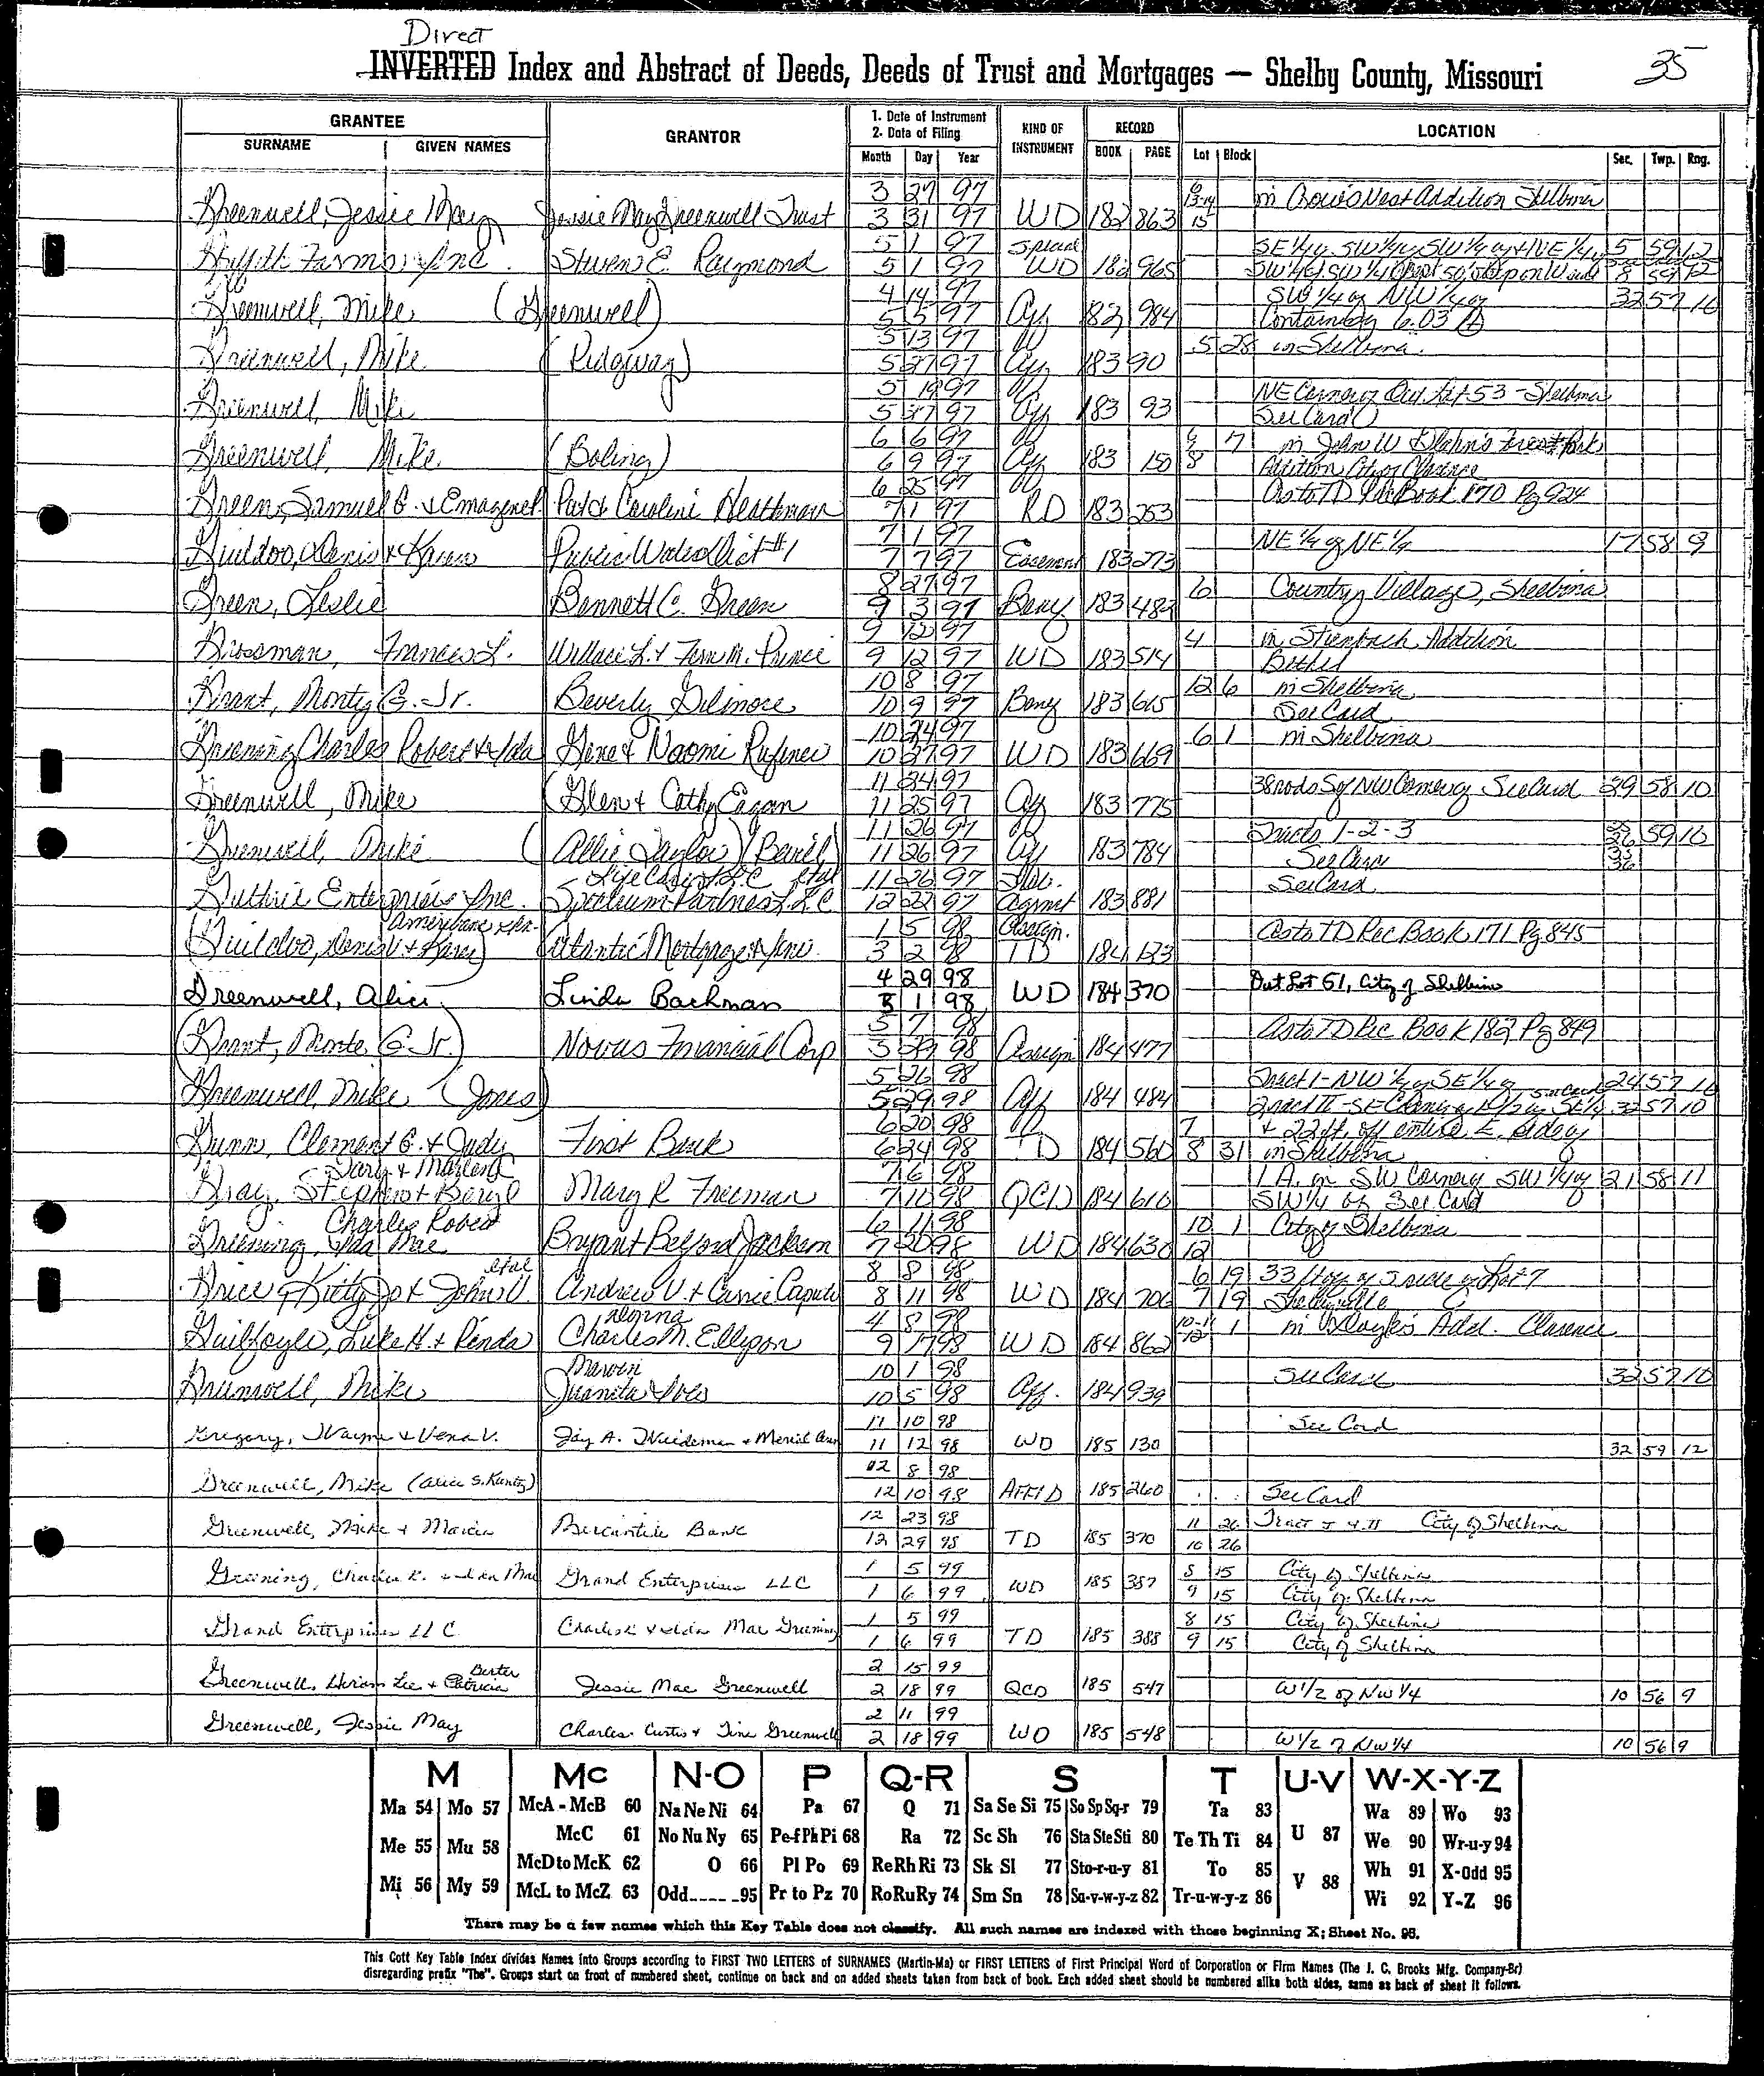 Direct
INVERTED Index and Abstract of Deeds, Deeds of Trust and Mortgages — Shelby County, Missouri 35
GRANTEE
SURNAME GIVEN NAMES
GRANTOR
1. Date of Instrument
2. Data of Filing
Month Day Year
KIND OF INSTRUMENT
RECORD
BOOK PAGE
LOCATION
Lot Block Sec. Twp. Rng.
3 27 97 13-14 in Addition Shelbina
Greenwell, Jessie May Jessie May Greenwell Trust 3 31 97 WD 182 863 15
5 1 97 Special SE 1/4 SW 1/4 SW 1/4 NE 1/4 5 59 12
Farms Inc. Steven E. Raymond 5 1 97 WD 182 965 8 59 12
4 14 97 SW 1/4 of NW 1/4 of 32 57 10
Greenwell, Mike (Greenwell) 5 5 97 Aff 182 984 Containing 6.03 A
5 13 97 5 28 in Shelbina.
Greenwell, Mike (Ridgway) 5 27 97 Aff 183 90
5 19 97 NE Corner of Out Lot 53 - Shelbina
Greenwell, Mike 5 27 97 Aff 183 93 See Card
6 6 97 7 in John W
Greenwell, Mike (Boling) 6 9 97 Aff 183 150 8 Addition City of Clarence
6 25 97 As to TD Rec Book 170 Pg 924
Green, Samuel G. & Emagene Pat & Caroline Heathman 7 1 97 RD 183 253
7 1 97 NE 1/4 of NE 1/4 17 58 9
Guildoo, Denis & Karen Public Water Dist #1 7 7 97 Easement 183 273
8 27 97 6 Country Village, Shelbina
Green, Leslie Bennett C. Green 9 3 97 Beny 183 482
9 12 97 4 in Steinbach Addition
Grossman, Frances L. Wallace L. & Fern M. Prince 9 12 97 WD 183 514 Bethel
10 8 97 12 6 in Shelbina
Grant, Monty G. Jr. Beverly Gilmore 10 9 97 Beny 183 615 See Card
10 24 97 6 1 in Shelbina
Greening Charles Robert & Ida Gene & Naomi Rufener 10 27 97 WD 183 669
11 24 97 38 rods S of NW Corner of See Card 29 58 10
Greenwell, Mike (Glen & Cathy Eagan 11 25 97 Aff 183 775
11 26 97 Tracts 1-2-3 26 59 10
Greenwell, Mike (Allie Taylor) 11 26 97 Aff 183 784 See Card 36
LLC etal 11 26 97 See Card
Guthrie Enterprises Inc. Spectrum Partners LLC 12 22 97 Agrmt 183 881
1 5 98 Assign. As to TD Rec Book 171 Pg 845
(Guildoo, Denis V & Karen) Atlantic Mortgage & Inv. 3 2 98 TD 184 133
4 29 98 Out Lot 61, City of Shelbina
Greenwell, Alice Linda Bachman 5 1 98 WD 184 370
5 7 98 As to TD Rec Book 182 Pg 849
(Grant, Monte G. Jr.) Novus Financial Corp 5 29 98 Assign 184 477
5 26 98 Tract I - NW 1/4 of SE 1/4 of See Card 24 57 10
Greenwell, Mike (Jones) 5 29 98 Aff 184 484 Tract II - SE Corner 32 57 10
6 20 98 7 & 22 ft. off entire E. side of
Gunn, Clement G. & Judy First Bank 6 24 98 TD 184 560 8 31 in Shelbina
Gary & Marlene 7 6 98 1 A. in SW Corner of SW 1/4 of 21 58 11
Gray, Stephen & Beryl Mary R Freeman 7 10 98 QCD 184 610 SW 1/4 of See Card
Charles Robert 6 1 98 10 1 City of Shelbina
Greening, Ida Mae Bryant Jackson 7 20 98 WD 184 630 12
etal 8 8 98 6 19 33 ft off of S side of Lot 7
Grice, Kitty Jo & John V. Andrew V. & Carrie Caputo 8 11 98 WD 184 706 7 19 Shelbyville
Donna 4 8 98 10-11 1 in Add. Clarence
Guilfoyle, Luke H. & Linda Charles M. Ellison 9 17 98 WD 184 862 12
Marvin 10 1 98 See Card 32 57 10
Greenwell, Mike Juanita 10 5 98 Aff. 184 939
11 10 98 See Card
Gregory, Wayne & Vena V. Jay A. Weideman & 11 12 98 WD 185 130 32 59 12
12 8 98
Greenwell, Mike (Alice S. Kuntz) 12 10 98 AFFID 185 260 See Card
12 23 98 11 26 Tract I & II City of Shelbina
Greenwell, Mike & Marcia Mercantile Bank 12 29 98 TD 185 370 10 26
1 5 99 8 15 City of Shelbina
Greening, Charles R. & Ida Mae Grand Enterprises LLC 1 6 99 WD 185 387 9 15 City of Shelbina
1 5 99 8 15 City of Shelbina
Grand Enterprises LLC Charles R & Ida Mae Greening 1 6 99 TD 185 388 9 15 City of Shelbina
2 15 99
Greenwell, Hiram Lee & Patricia Jessie Mae Greenwell 2 18 99 QCD 185 547 W 1/2 of NW 1/4 10 56 9
2 11 99
Greenwell, Jessie May Charles Curtis & Tina Greenwell 2 18 99 WD 185 548 W 1/2 of NW 1/4 10 56 9
M Mc N-O P Q-R S T U-V W-X-Y-Z
Ma 54 Mo 57 McA - McB 60 Na Ne Ni 64 Pa 67 Q 71 Sa Se Si 75 So Sp Sq-r 79 Ta 83 Wa 89 Wo 93
Me 55 Mu 58 McC 61 No Nu Ny 65 Pe-f Ph Pi 68 Ra 72 Sc Sh 76 Sta Ste Sti 80 Te Th Ti 84 U 87 We 90 Wr-u-y 94
McD to McK 62 O 66 Pl Po 69 Re Rh Ri 73 Sk Sl 77 Sto-r-u-y 81 To 85 Wh 91 X-Odd 95
Mi 56 My 59 McL to McZ 63 Odd 95 Pr to Pz 70 Ro Ru Ry 74 Sm Sn 78 Su-v-w-y-z 82 Tr-u-w-y-z 86 V 88 Wi 92 Y-Z 96
There may be a few names which this Key Table does not classify. All such names are indexed with those beginning X; Sheet No. 95.
This Cott Key Table Index divides Names into Groups according to FIRST TWO LETTERS of SURNAMES (Martin-Ma) or FIRST LETTERS of First Principal Word of Corporation or Firm Names (The J. C. Brooks Mfg. Company-Br)
disregarding prefix "The". Groups start on front of numbered sheet, continue on back and on added sheets taken from back of book. Each added sheet should be numbered alike both sides, same as back of sheet it follows.